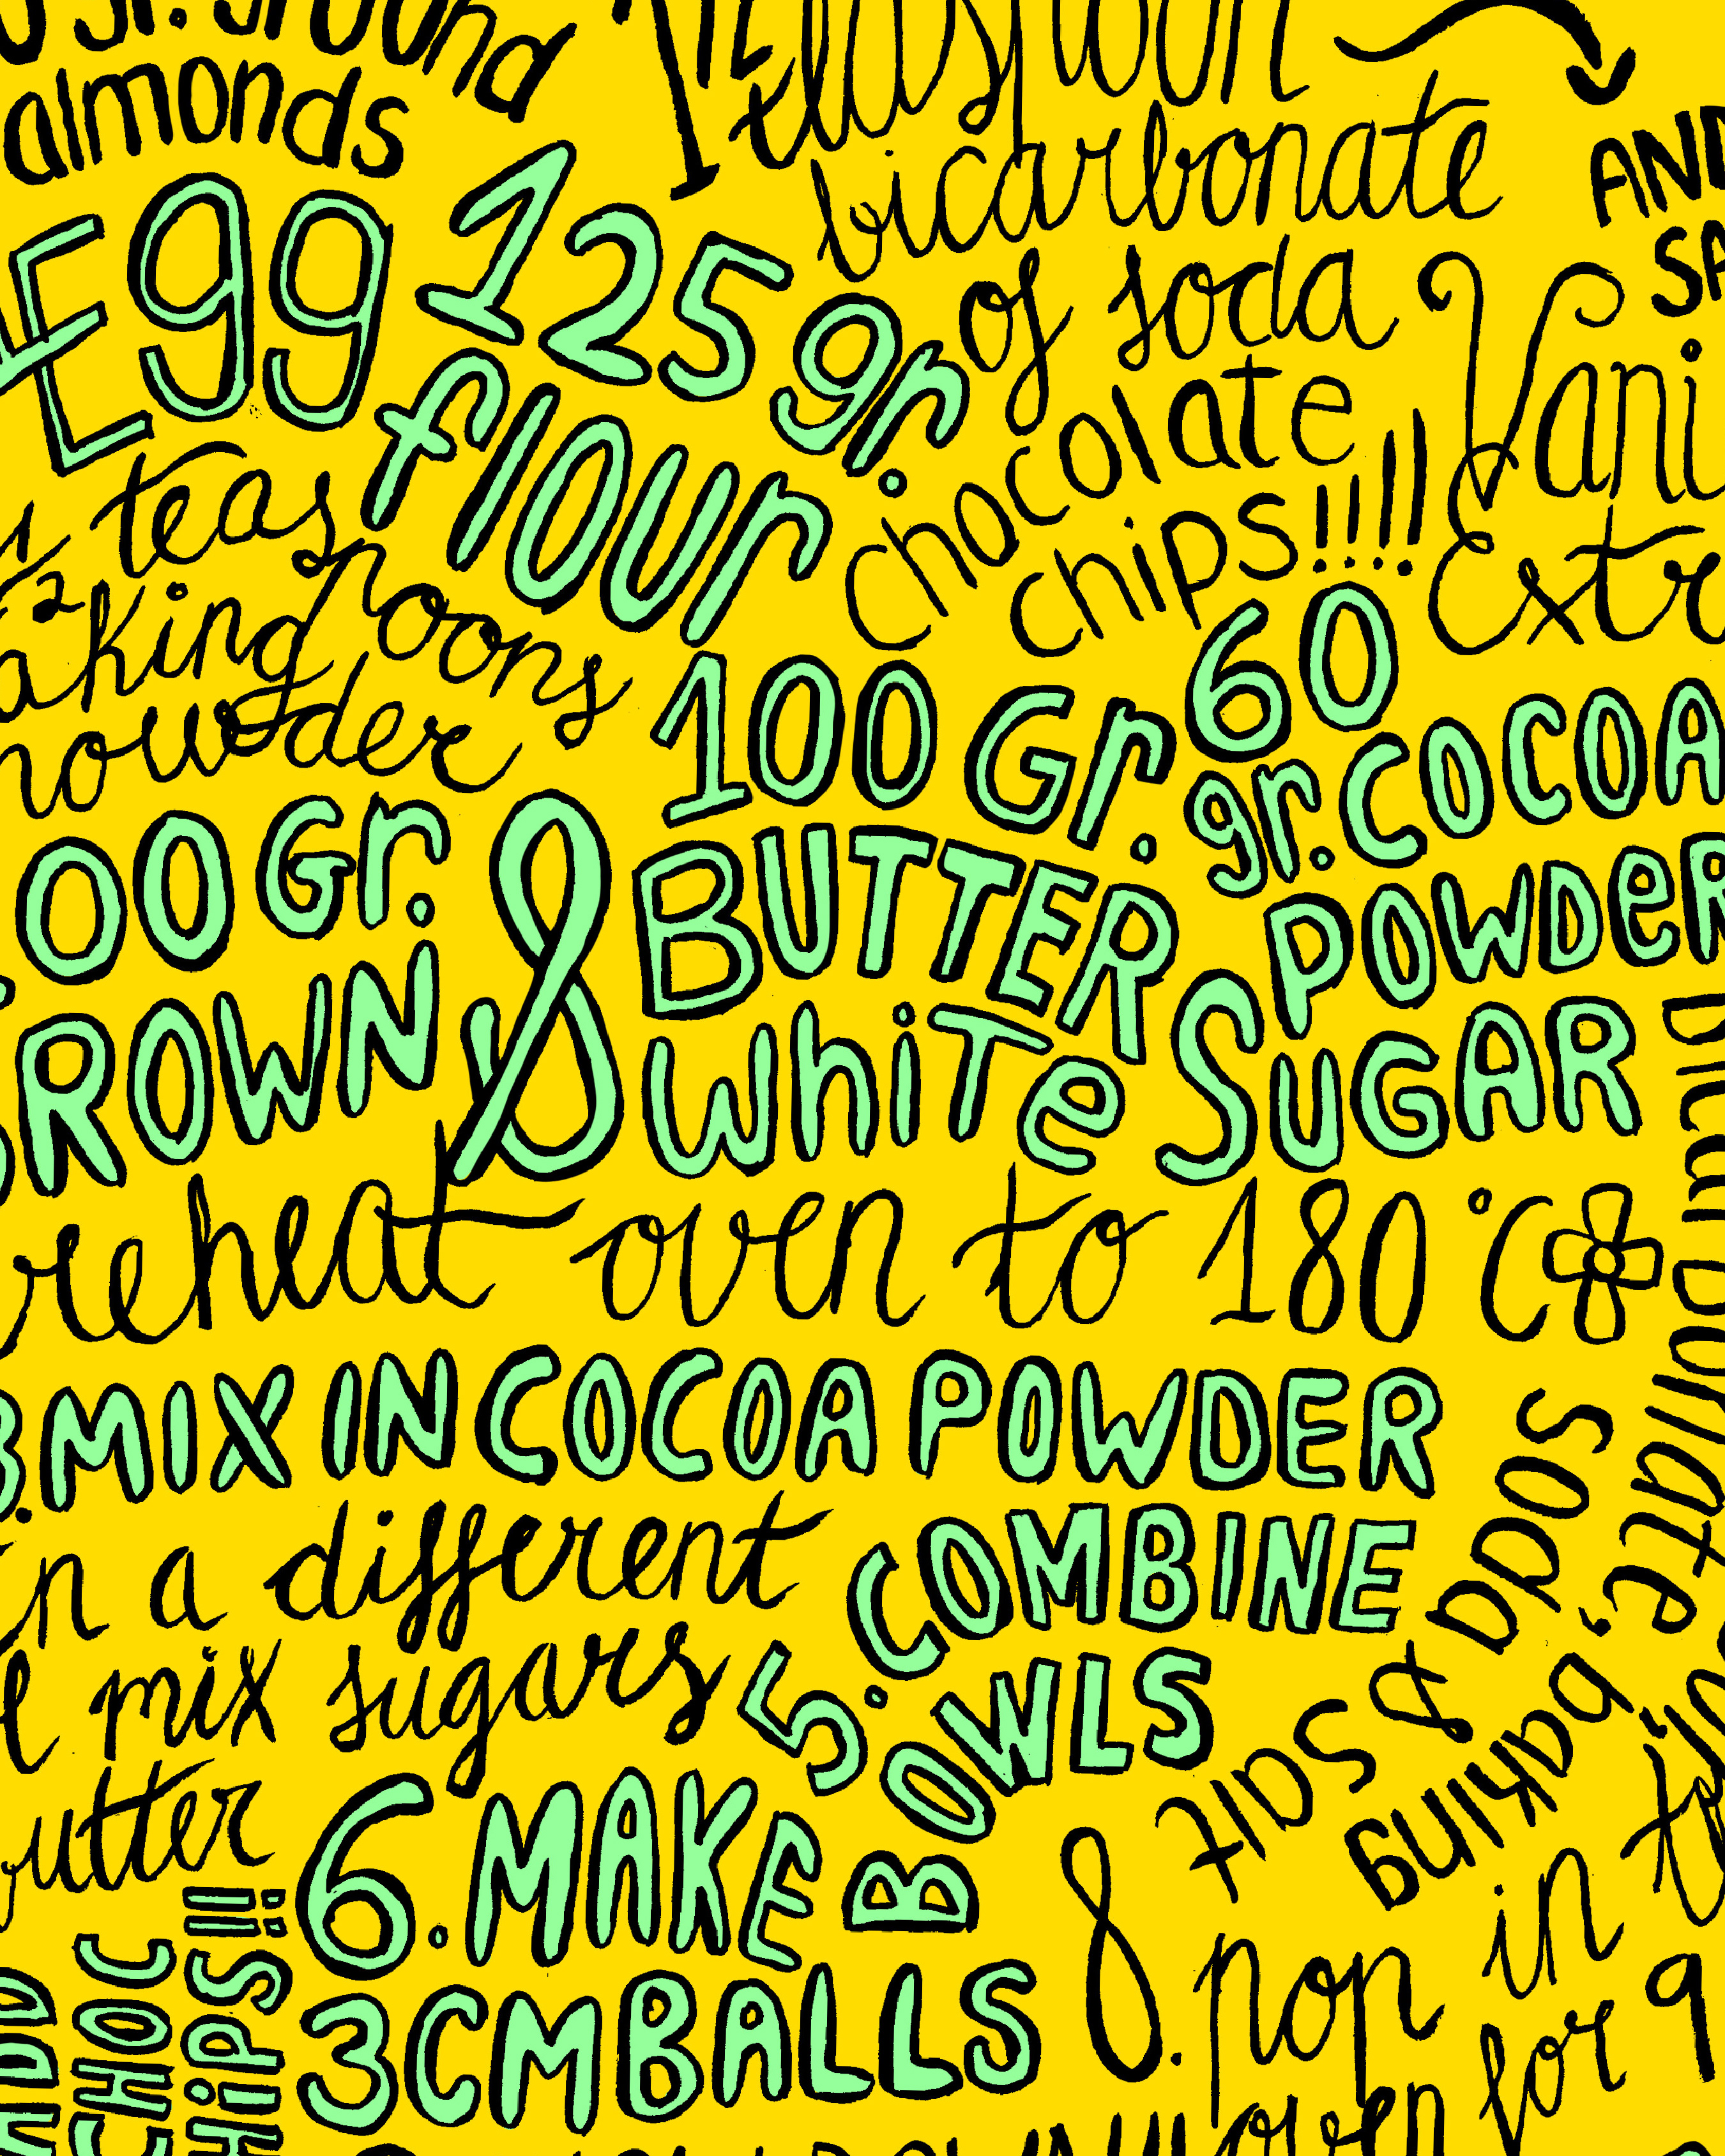 almonds
1 teaspoon
bicarbonate
of soda
AND
Egg
125 gr.
flour
chocolate
chips!!!!
teaspoons
powder
100 Gr.
BUTTER
60
gr. COCOA
POWDER
Gr.
&
white SUGAR
oven to 180 °C
3. MIX IN COCOA POWDER
a different
mix sugars
5. COMBINE
BOWLS
6. MAKE
3CM BALLS
CHOC
CHIPS!!
bicarbonate,
baking
SODA & SALT
8. pop in
oven for 9